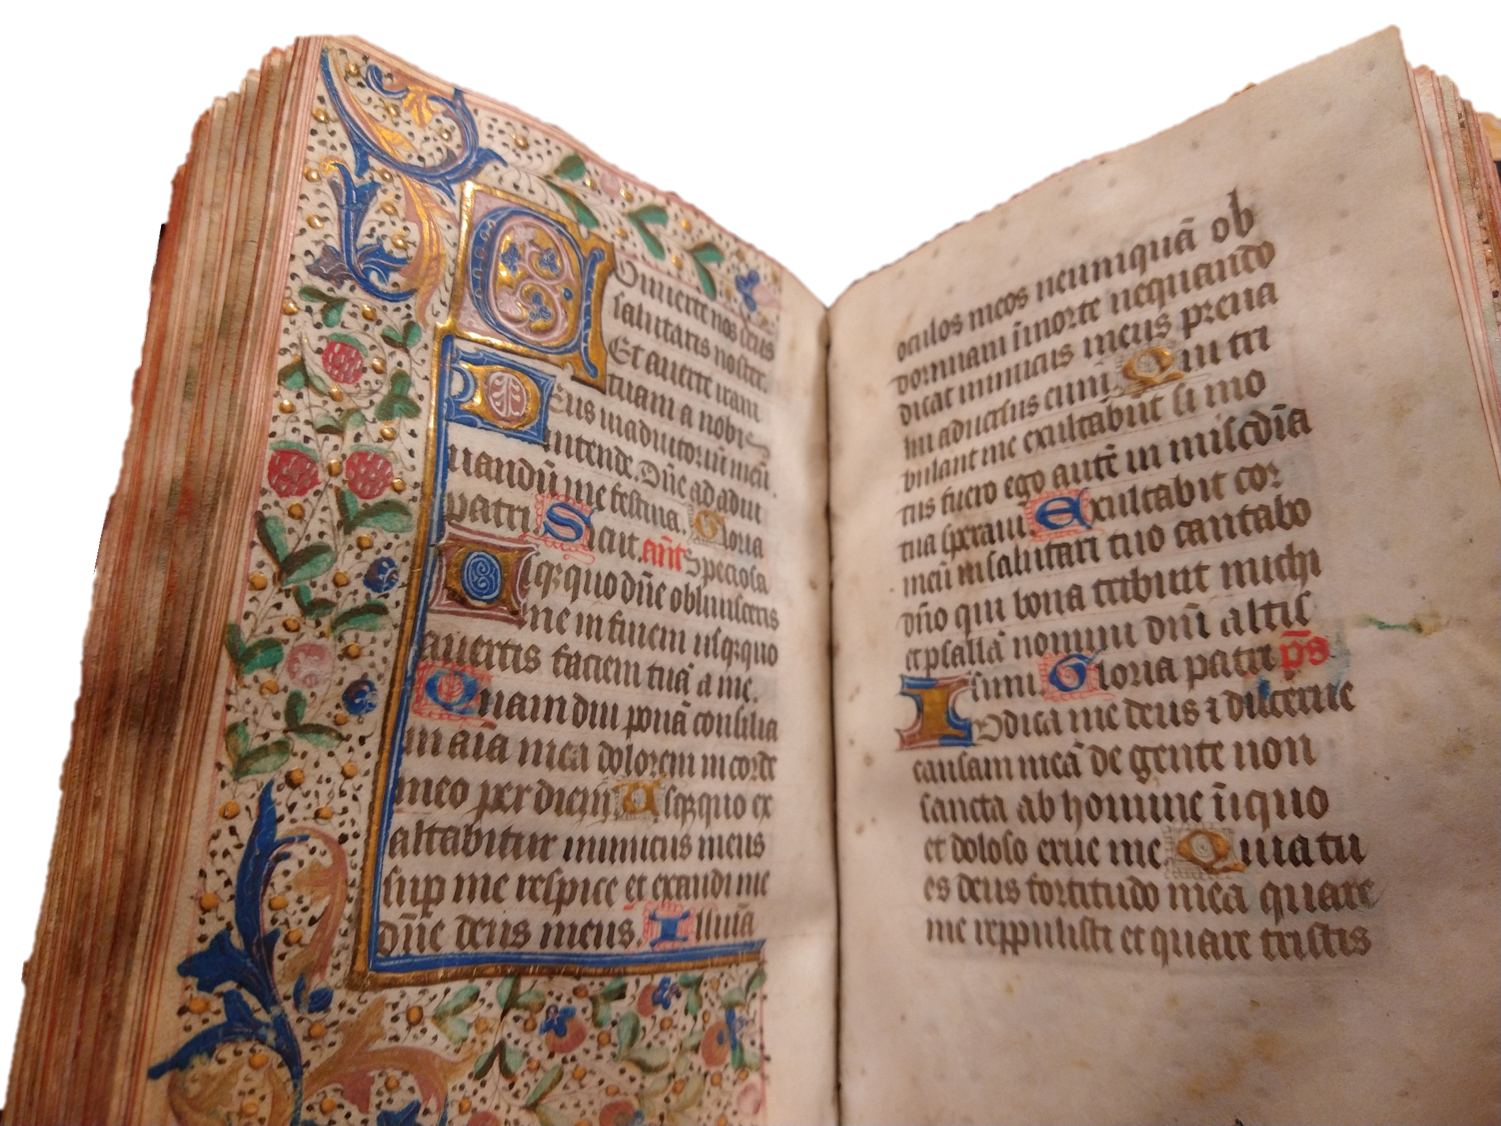 Onuerte nos deus
salutaris noster.
Et auerte iram
tuam a nobis
Eus in adiutoriū meū.
intende. Dn̄e ad adiu
uandū me festina. Gloria
patri. Sicut. an̄t Speciosa
sq̄ quo dn̄e obliuisceris
me in finem usq̄ quo
auertis faciem tuā a me.
Quam diu ponā consilia
in aīa mea dolorem in corde
meo per diem. Usq̄ quo ex
altabitur inimicus meus
sup me respice et exaudi me
dn̄e deus meus. Illuīa
oculos meos ne unquā ob
dormiam ī morte nequando
dicat inimicus meus preua
lui aduersus eum. Qui tri
bulant me exultabūt si mo
tus fuero ego autē in mis̄cdīa
tua speraui. Exultabit cor
meū in salutari tuo cantabo
dn̄o qui bona tribuit michi
et psallā nomini dn̄i altis
simi. Gloria patri p̄s
Iudica me deus ⁊ discerne
causam meā de gente non
sancta ab homine īiquo
et doloso erue me Quia tu
es deus fortitudo mea quare
me reppulisti et quare tristis